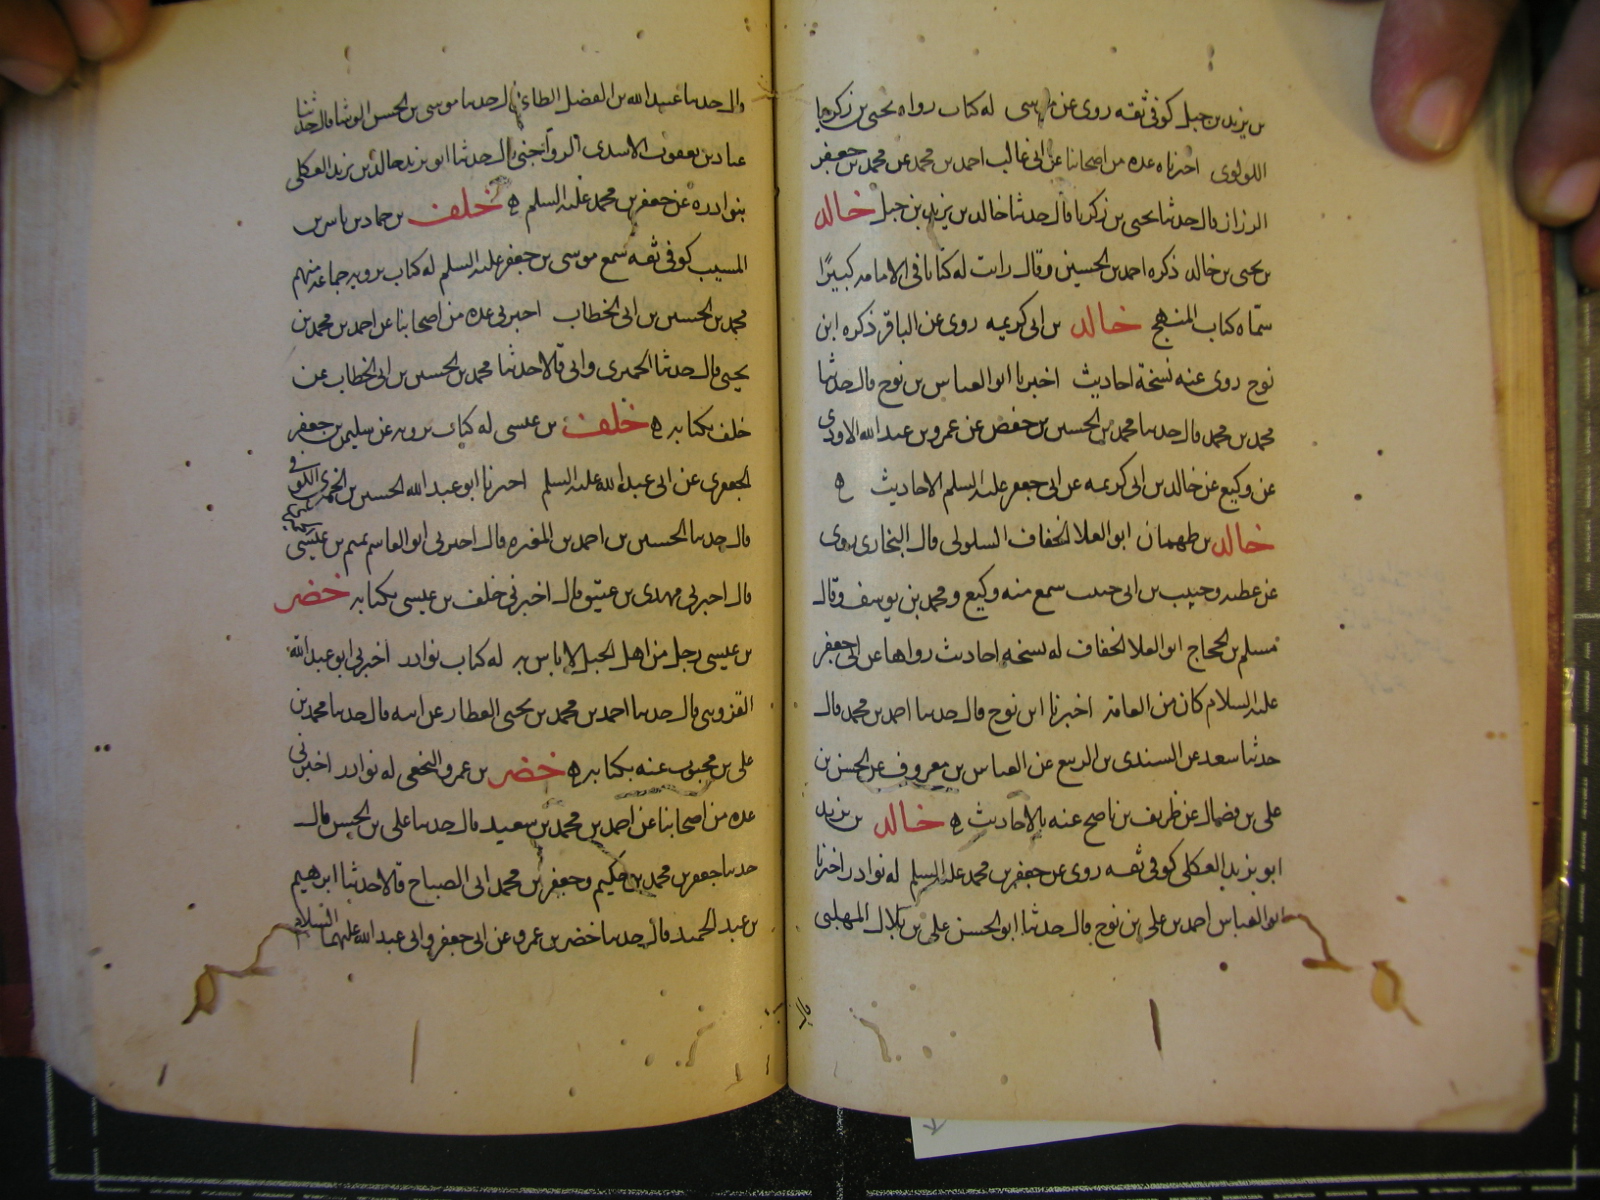 بن يزيد بن جبل كوفي ثقة روى عن موسى له كتاب رواه يحيى بن زكريا
اللولوى اخبرناه عدة من اصحابنا عن ابى غالب احمد بن محمد عن محمد بن جعفر
الرزاز قال حدثنا يحيى بن زكريا قال حدثنا خالد بن يزيد بن جبل خالد
بن يحيى بن خالد ذكره احمد بن الحسين وقال رايت له كتابا فى الامامه كبيرًا
سمّاه كتاب المنهج خالد بن ابى كريمه روى عن الباقر ذكره ابن
نوح روى عنه نسخة احاديث اخبرنا ابو العباس بن نوح قال حدثنا
محمد بن محمد قال حدثنا محمد بن الحسين بن حفص عن عمرو بن عبد الله الاودى
عن وكيع عن خالد بن ابى كريمه عن ابى جعفر عليه السلم الاحاديث ه
خالد بن طهمان ابو العلا الخفاف السلولى قال البخارى روى
عن عطيه وحبيب بن ابى حبيب سمع منه وكيع ومحمد بن يوسف وقال
مسلم بن الحجاج ابو العلا الخفاف له نسخة احاديث رواها عن ابى جعفر
عليه السلام كان من العامة اخبرنا ابن نوح قال حدثنا احمد بن محمد قال
حدثنا سعد عن السندى بن الربيع عن العباس بن معروف عن الحسن بن
على بن فضال عن ظريف بن ناصح عنه بالاحاديث ه خالد بن يزيد
ابو يزيد العكلى كوفى ثقه روى عن جعفر بن محمد عليه السلم له نوادر اخبرنا
ابو العباس احمد بن على بن نوح قال حدثنا ابو الحسن على بن بلال المهلبى
قال
قال حدثنا عبيد الله بن الفضل الطائى قال حدثنا موسى بن الحسن الوشا قال حدثنا
عباد بن يعقوب الاسدى الرواجنى قال حدثنا ابو يزيد خالد بن يزيد العكلى
بنوادره عن جعفر بن محمد عليه السلم ه خلف بن حماد بن ياسر بن
المسيب كوفى ثقه سمع موسى بن جعفر عليه السلم له كتاب يرويه جماعه منهم
محمد بن الحسين بن ابى الخطاب اخبرنى عده من اصحابنا عن احمد بن محمد بن
يحيى قال حدثنا الحميرى وابى قالا حدثنا محمد بن الحسين بن ابى الخطاب عن
خلف بكتابه ه خلف بن عيسى له كتاب يرويه عن سليمن بن جعفر
الجعفرى عن ابى عبد الله عليه السلم اخبرنا ابو عبد الله الحسين بن الخمرى الكوفى
قال حدثنا الحسين بن احمد بن المغيره قال اخبرنى ابو القاسم تميم بن عيسى
قال اخبرنى مهدى بن عتيق قال اخبرنى خلف بن عيسى بكتابه خضر
بن عيسى رجل من اهل الجبل لا باس به له كتاب نوادر اخبرنى ابو عبد الله
القزوينى قال حدثنا احمد بن محمد بن يحيى العطار عن ابيه قال حدثنا محمد بن
على بن محبوب عنه بكتابه ه خضر بن عمرو النخعى له نوادر اخبرنى
عده من اصحابنا عن احمد بن محمد بن سعيد قال حدثنا على بن الحسن قال
حدثنا جعفر بن محمد بن حكيم وجعفر بن محمد ابى الصباح قالا حدثنا ابرهيم
بن عبد الحميد قال حدثنا خضر بن عمرو عن ابى جعفر وابى عبد الله عليهما السلام